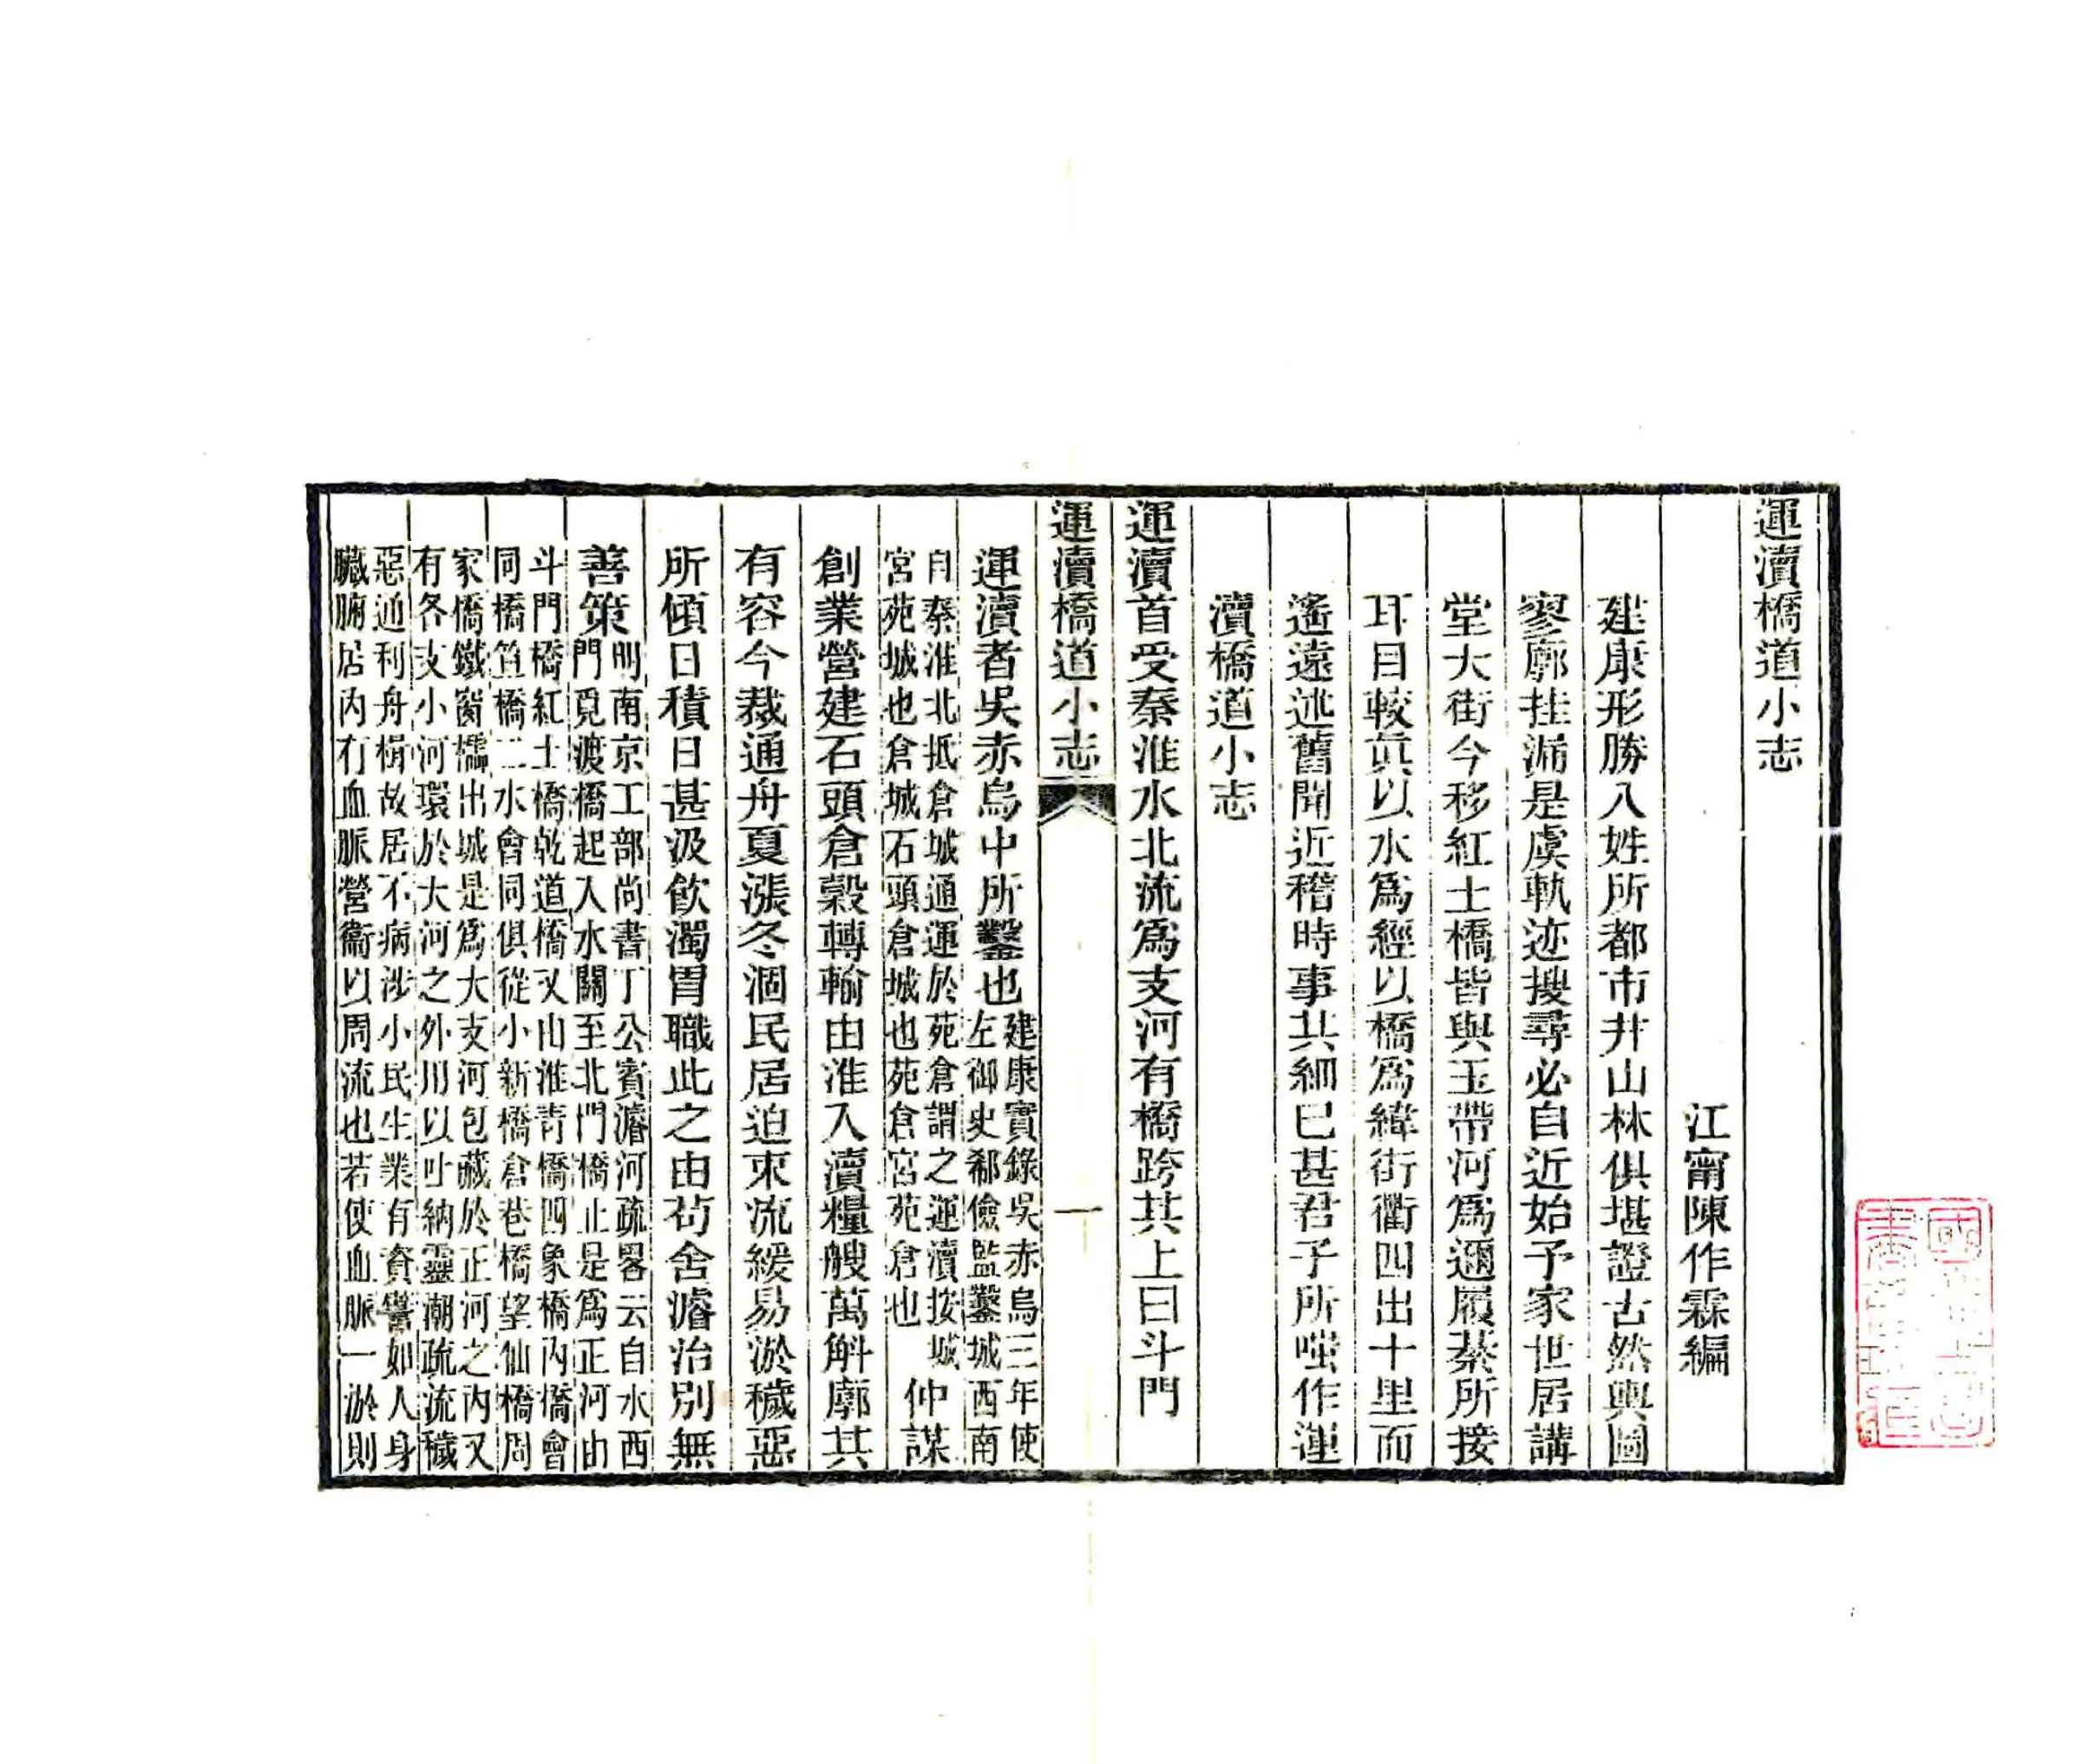 運瀆橋道小志
江甯陳作霖編
建康形勝入姓所都市井山林俱堪證古然輿圖
寥廓挂漏是虞軌迹搜尋必自近始予家世居講
堂大街今移紅土橋皆與玉帶河爲邇履綦所接
耳目較眞以水爲經以橋爲緯街衢四出十里而
遙遠述舊聞近稽時事其細已甚君子所嗤作運
瀆橋道小志
運瀆首受秦淮水北流爲支河有橋跨其上曰斗門
運瀆橋道小志 一
運瀆者吳赤烏中所鑿也建康實錄吳赤烏三年使
左御史郗儉監鑿城西南
自秦淮北抵倉城通運於苑倉謂之運瀆按城
宮苑城也倉城石頭倉城也苑倉宮苑倉也 仲謀
創業營建石頭倉穀轉輸由淮入瀆糧艘萬斛廓其
有容今裁通舟夏漲冬涸民居迫束流緩易淤穢惡
所傾日積日甚汲飲濁胃職此之由苟舍濬治別無
善策明南京工部尚書丁公賓濬河疏畧云自水西
門覓渡橋起入水關至北門橋止是爲正河由
斗門橋紅土橋乾道橋又由淮青橋四象橋內橋會
同橋笪橋二水會同俱從小新橋倉巷橋望仙橋周
家橋鐵窗櫺出城是爲大支河包藏於正河之內又
有各支小河環於大河之外用以吐納靈潮疏流穢
惡通利舟楫故居不病涉小民生業有資譬如人身
臟腑居內有血脈營衞以周流也若使血脈一淤則